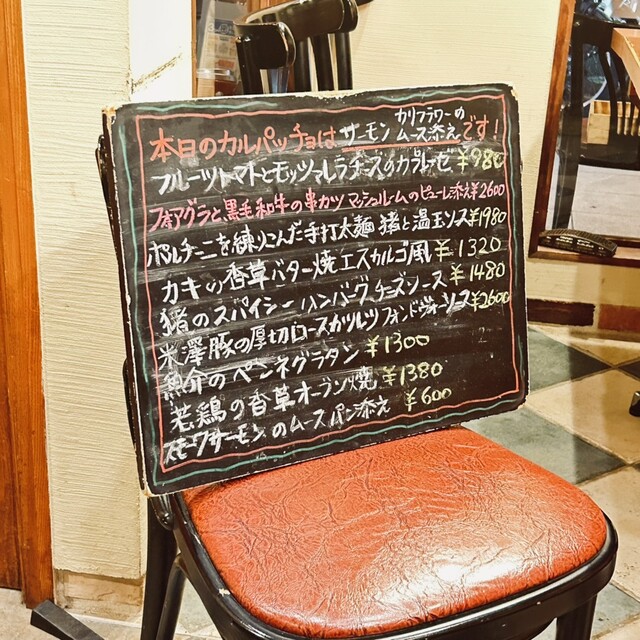 本日のカルパッチョは サーモン カリフラワーの ムース添え です！
フルーツトマトとモッツァレラチーズのカプレーゼ ¥980
フォアグラと黒毛和牛の串カツ マッシュルームのピューレ添え ¥2600
ポルチーニを練りこんだ手打太麺 猪と温玉ソース ¥1980
カキの香草バター焼 エスカルゴ風 ¥1320
猪のスパイシーハンバーグ チーズソース ¥1480
米澤豚の厚切ロースカツレツ フォンドヴォーソース ¥2600
魚介のペンネグラタン ¥1300
若鶏の香草オーブン焼 ¥1380
スモークサーモンのムース パン添え ¥600